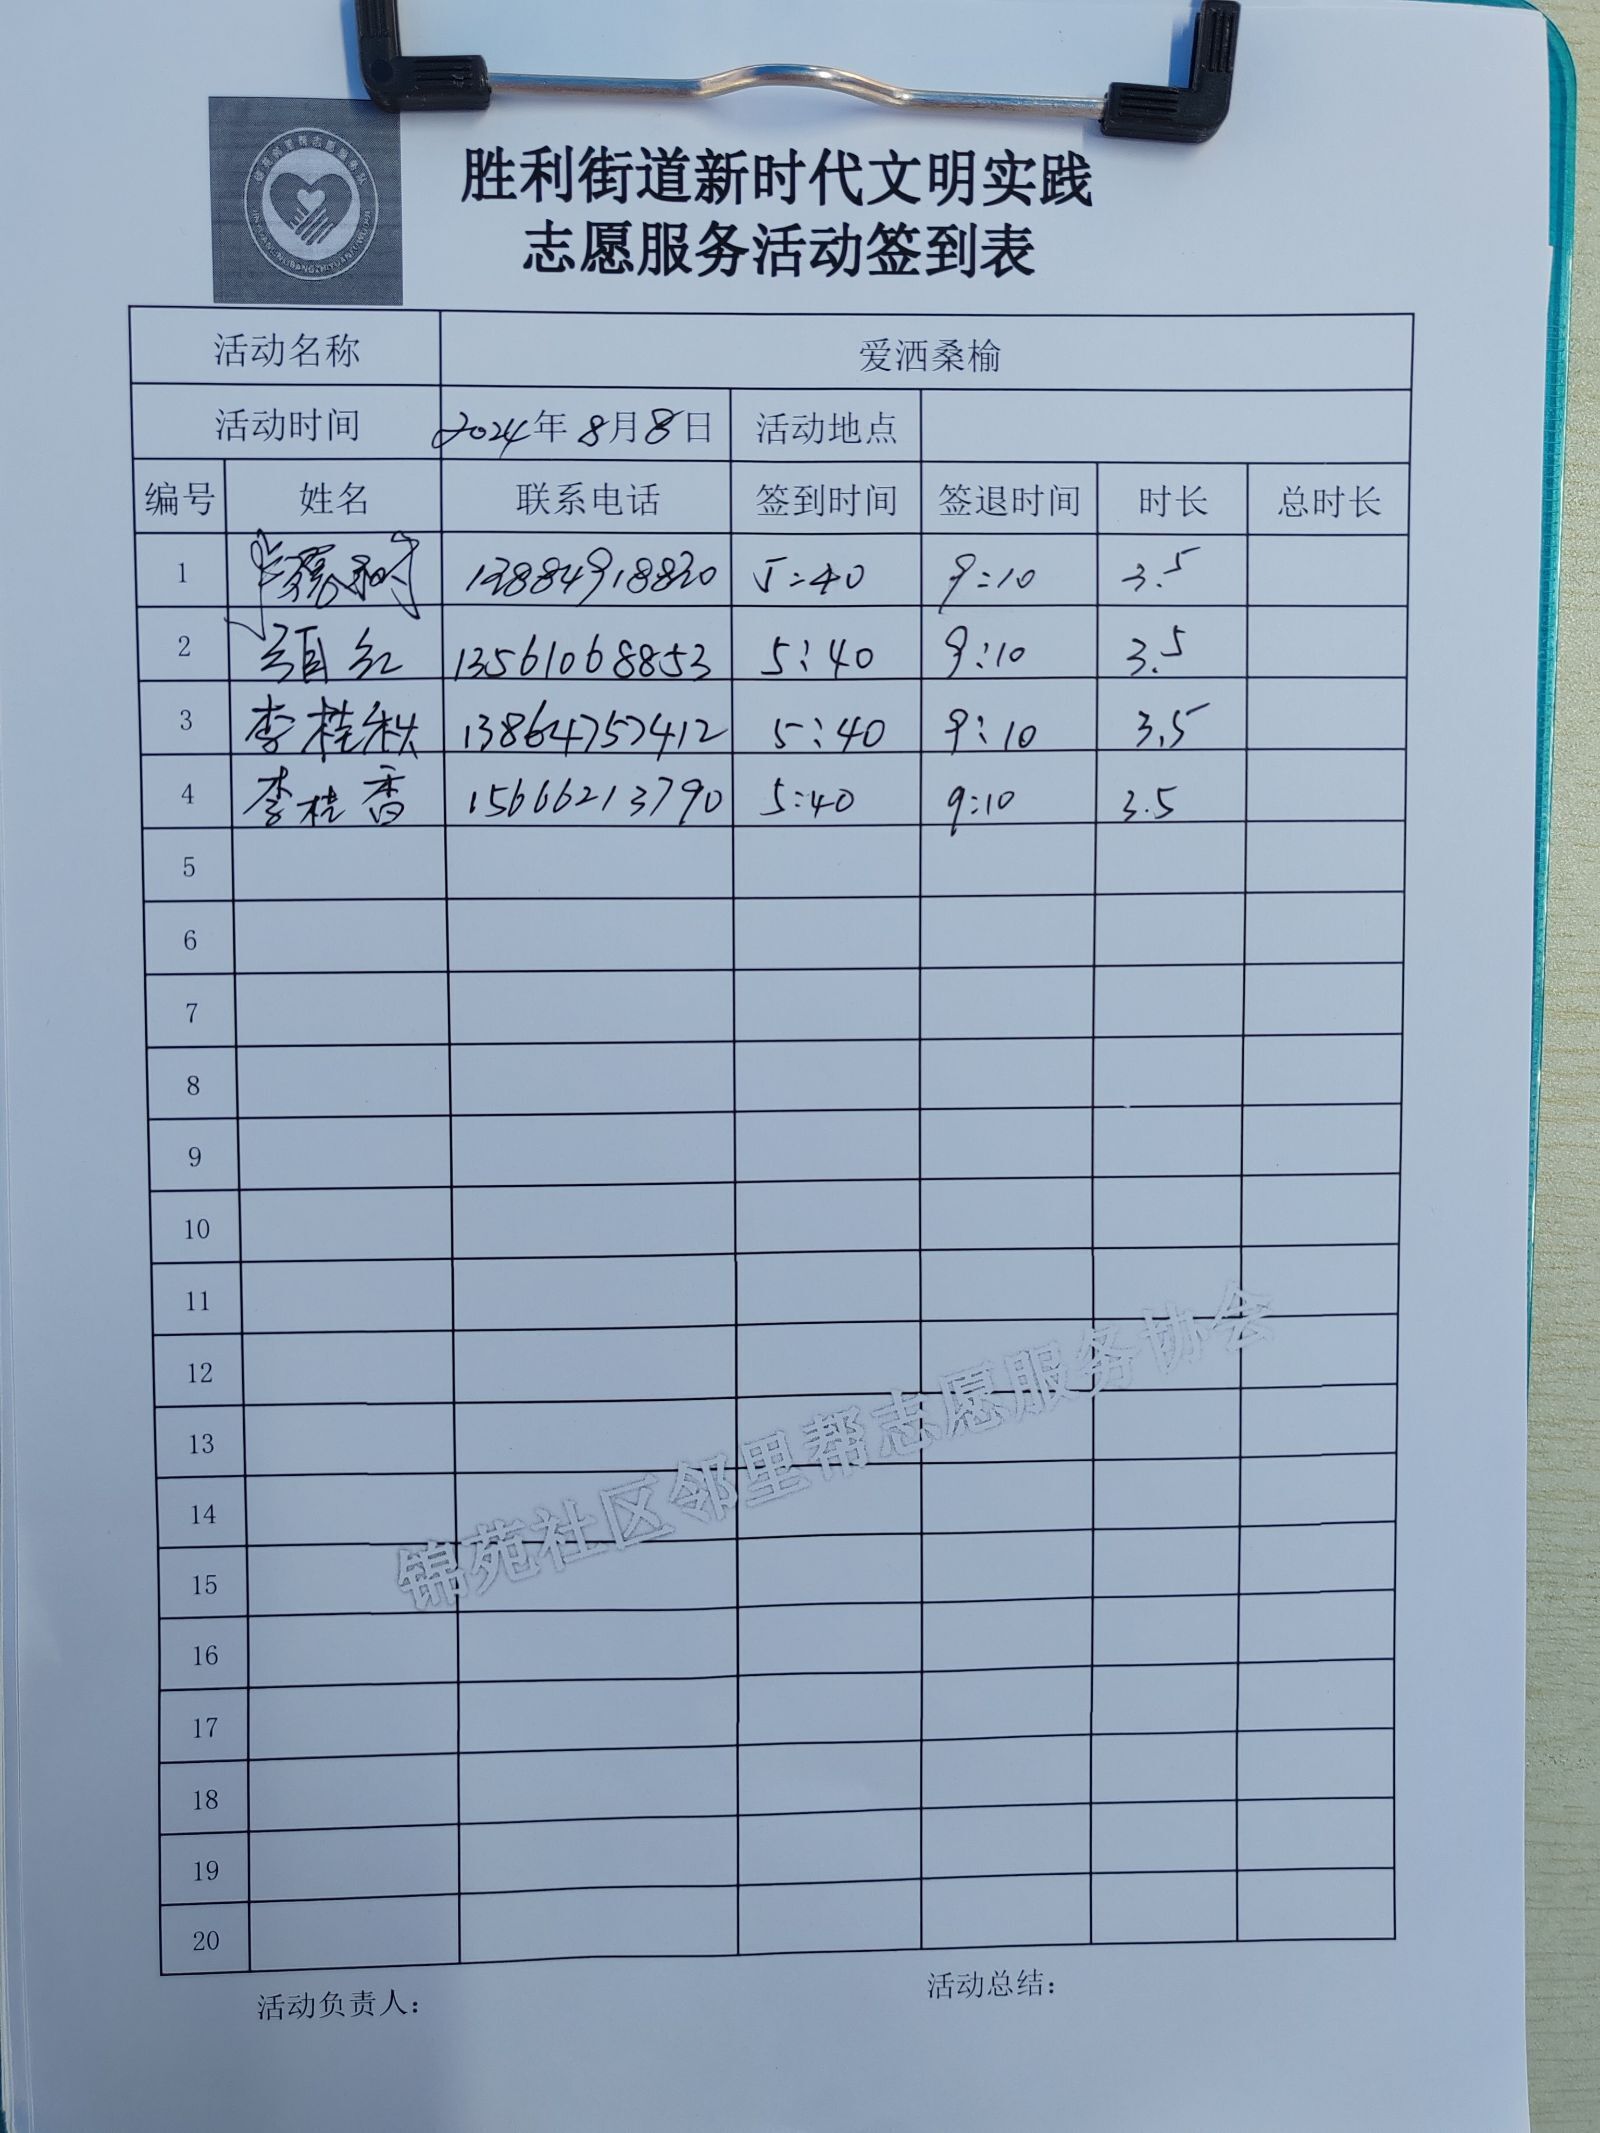 胜利街道新时代文明实践
志愿服务活动签到表
活动名称 爱洒桑榆
活动时间 2024年8月8日 活动地点
编号 姓名 联系电话 签到时间 签退时间 时长 总时长
1 13884918820 5:40 9:10 3.5
2 项红 13561068853 5:40 9:10 3.5
3 李桂秋 13864757412 5:40 9:10 3.5
4 李桂香 15666213790 5:40 9:10 3.5
5
6
7
8
9
10
11
12
13
14
15
16
17
18
19
20
锦苑社区邻里帮志愿服务协会
活动负责人： 活动总结：